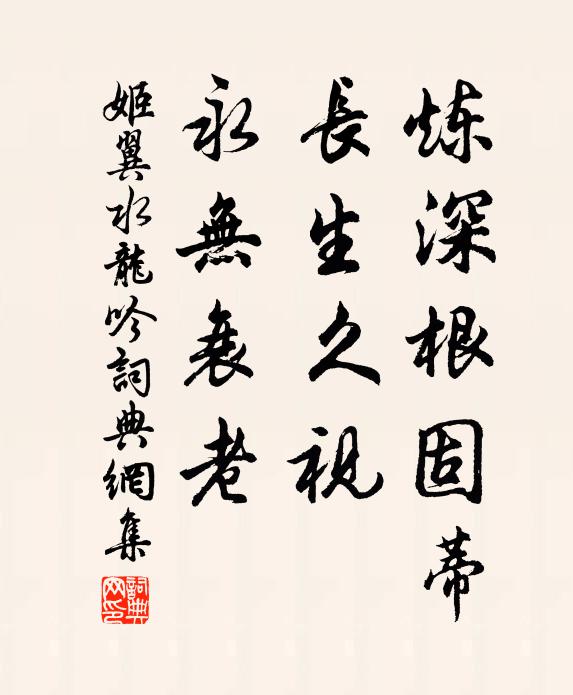 炼深根固蒂
長生久視
永無衰老
姬翼水龍吟詞典網集
詞典
网印